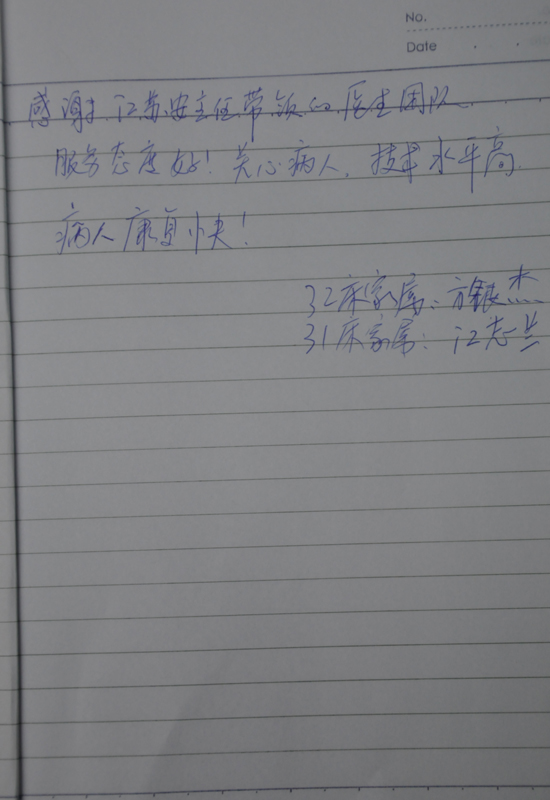 No.
Date
感谢江苏安主任带领的医生团队
服务态度好！关心病人，技术水平高.
病人康复快！
32床家属：方银杰
31床家属：江志兰